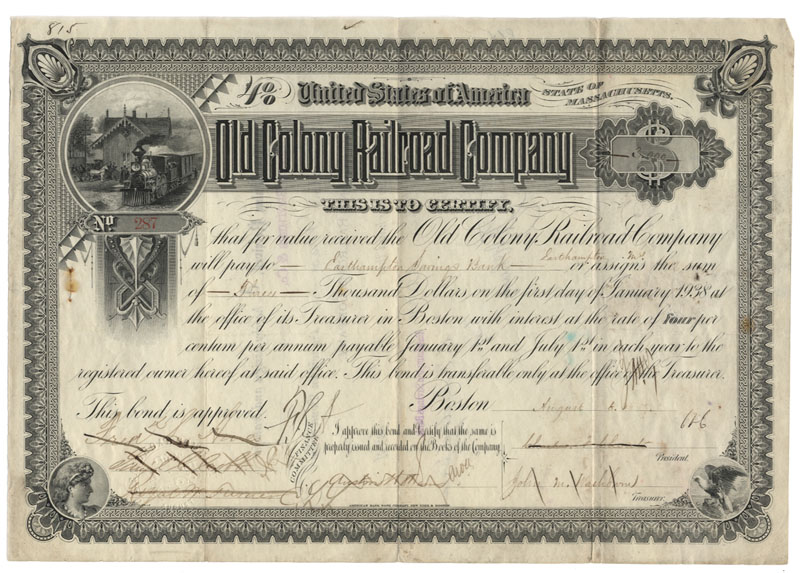 815
4%
United States of America
STATE OF
MASSACHUSETTS.
Old Colony Railroad Company
THIS IS TO CERTIFY,
No. 287
that for value received the Old Colony Railroad Company
will pay to — Easthampton Savings Bank — Easthampton Ms or assigns the sum
of — Three — Thousand Dollars on the first day of January 1938 at
the office of its Treasurer in Boston with interest at the rate of Four per
centum per annum payable January 1st and July 1st in each year to the
registered owner hereof at said office. This bond is transferable only at the office of the Treasurer.
This bond is approved.
Boston August
FINANCE
COMMITTEE
I approve this bond and Certify that the same is
properly issued and recorded on the Books of the Company
President.
John M. Washburn
Treasurer.
AMERICAN BANK NOTE COMPANY, NEW YORK & BOSTON